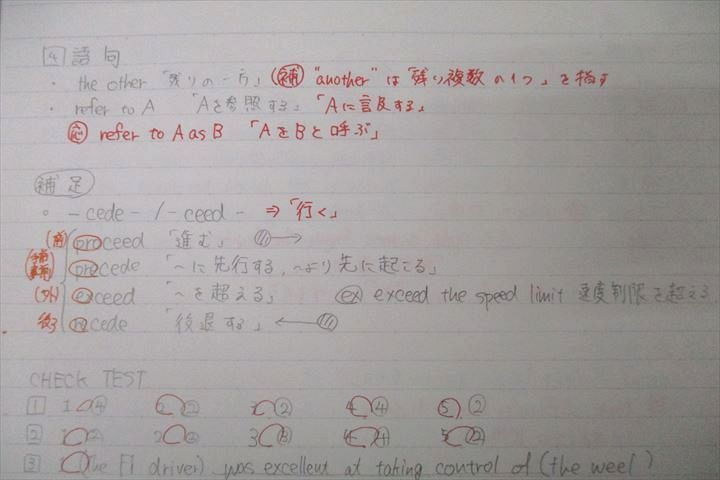 4 語句
・ the other 「残りの一方」 (補) "another" は「残り複数の1つ」を指す
・ refer to A 「Aを参照する」「Aに言及する」
応 refer to A as B 「AをBと呼ぶ」
補足
○ -cede- / -ceed- ⇒「行く」
(前) proceed 「進む」
(手前事前) precede 「〜に先行する、〜より先に起こる」
(外) exceed 「〜を超える」 ex exceed the speed limit 速度制限を超える
後ろ recede 「後退する」
CHECK TEST
1 1 ④ 2 ② 3 ② 4 ④ 5 ②
2 1 ② 2 ② 3 ③ 4 ④ 5 ②
3 1 (The F1 driver) was excellent at taking control of (the weel)